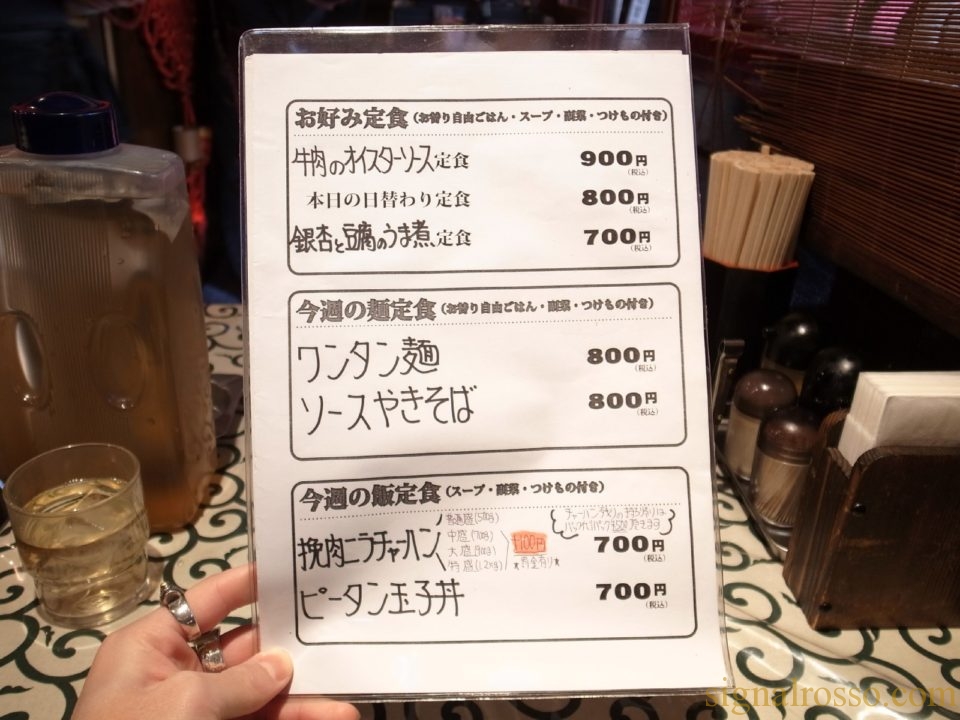 お好み定食(お替り自由ごはん・スープ・副菜・つけもの付き)
牛肉のオイスターソース定食 900円(税込)
本日の日替わり定食 800円(税込)
銀杏と豆腐のうま煮、定食 700円(税込)
今週の麺定食(お替り自由ごはん・副菜・つけもの付き)
ワンタン麺 800円(税込)
ソースやきそば 800円(税込)
今週の飯定食(スープ・副菜・つけもの付き)
挽肉ニラチャーハン 700円(税込)
普通盛(500g)
中盛(700g)
大盛(900g)
特盛(1.2kg)
+100円
★罰金有り★
ピータン玉子丼 700円(税込)
signalrosso.com